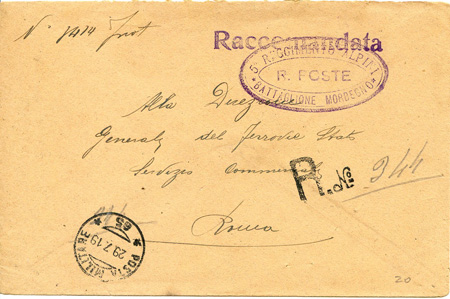 N. 1414 Prot
Raccomandata
5° REGGIMENTO ALPINI
R. POSTE
BATTAGLIONE MORBEGNO
Alla Direzione
Generale del Ferrovie Stato
Servizio Commerc
Roma
R. N.
944
POSTA MILITARE
29.7.19
65
20